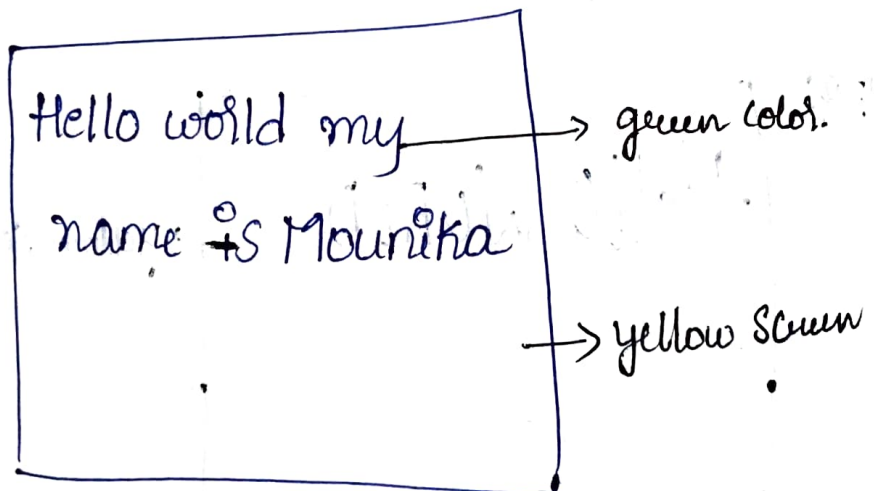 Hello world my
green color.
name is Mounika
yellow screen